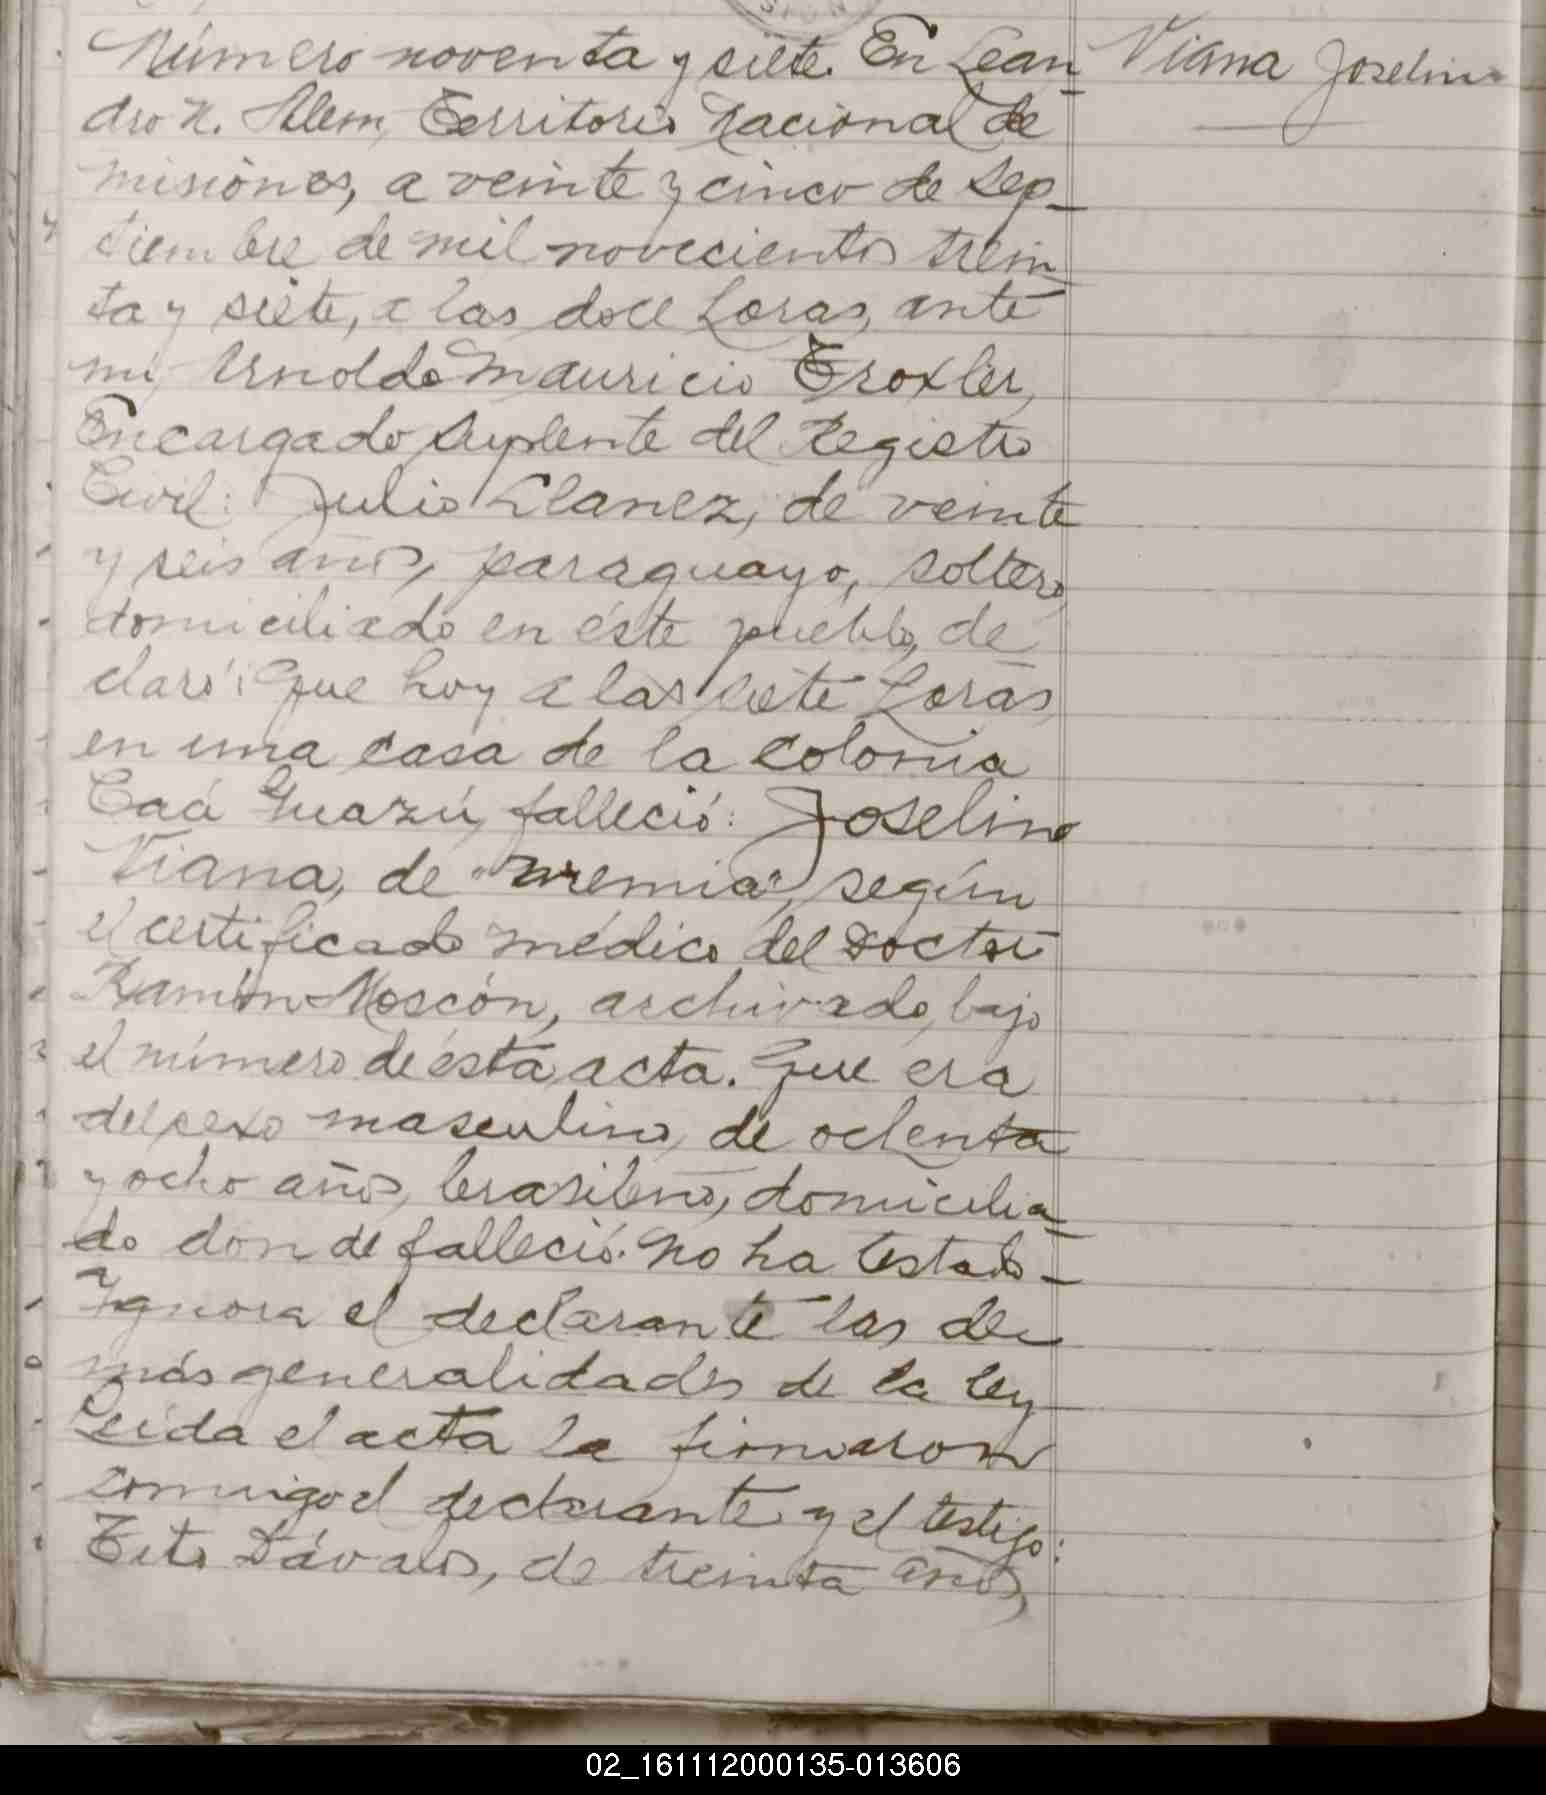 Número noventa y siete. En Lean-
dro N. Alem, Territorio Nacional de
misiones, a veinte y cinco de Sep-
tiembre de mil novecientos trein-
ta y siete, a las doce horas, ante
mi, Arnoldo Mauricio Troxler,
Encargado Suplente del Registro
Civil: Julio Llanez, de veinte
y seis años, paraguayo, soltero,
domiciliado en éste pueblo, de
claró: Que hoy a las siete horas,
en una casa de la colonia
Caá Guazú, falleció: Joselino
Viana, de "uremia", según
el certificado médico del Doctor
Ramón Moscón, archivado, bajo
el número de ésta acta. Que era
del sexo masculino, de ochenta
y ocho años, brasileño, domicilia-
do donde falleció. No ha testado-
Ignora el declarante las de
más generalidades de la ley
Leída el acta la firmaron
conmigo el declarante y el testigo:
Tito Dávalos, de treinta años,
Viana Joselino
02_161112000135-013606